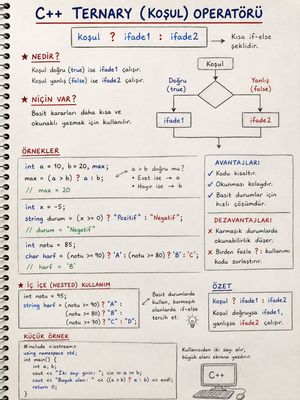 C++ TERNARY (KOŞUL) OPERATÖRÜ
Koşul ? ifade1 : ifade2
Kısa if-else
şeklidir.
★ NEDİR?
Koşul doğru (true) ise ifade1 çalışır.
Koşul yanlış (false) ise ifade2 çalışır.
Koşul
Doğru
(true)
Yanlış
(false)
ifade1
ifade2
★ NİÇİN VAR?
Basit kararları daha kısa ve
okunaklı yazmak için kullanılır.
ÖRNEKLER
int a = 10, b = 20, max;
max = (a > b) ? a : b;
// max = 20
a > b doğru mu?
• Evet ise → a
• Hayır ise → b
int x = -5;
string durum = (x >= 0) ? "Pozitif" : "Negatif";
// durum = "Negatif"
int notu = 85;
char harf = (notu >= 90) ? 'A' : (notu >= 80) ? 'B' : 'C';
// harf = 'B'
AVANTAJLARI
✓ Kodu kısaltır.
✓ Okunması kolaydır.
✓ Basit durumlar için
hızlı çözümdür.
DEZAVANTAJLARI
✗ Karmaşık durumlarda
okunabilirlik düşer.
✗ Birden fazla ?: kullanımı
kodu zorlaştırır.
★ İÇ İÇE (NESTED) KULLANIM
int notu = 95;
string harf = (notu >= 90) ? "A" :
(notu >= 80) ? "B" :
(notu >= 70) ? "C" : "D";
Basit durumlarda
kullan, karmaşık
olanlarda if-else
tercih et.
ÖZET
Koşul ? ifade1 : ifade2
Koşul doğruysa ifade1,
yanlışsa ifade2 çalışır.
KÜÇÜK ÖRNEK
#include <iostream>
using namespace std;
int main() {
int a, b;
cout << "İki sayı girin: "; cin >> a >> b;
cout << "Büyük olan: " << ((a > b) ? a : b) << endl;
return 0;
}
Kullanıcıdan iki sayı alır,
büyük olanı ekrana yazdırır.
C++